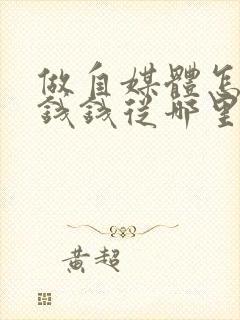 做自媒體怎
錢錢從哪里
黄超